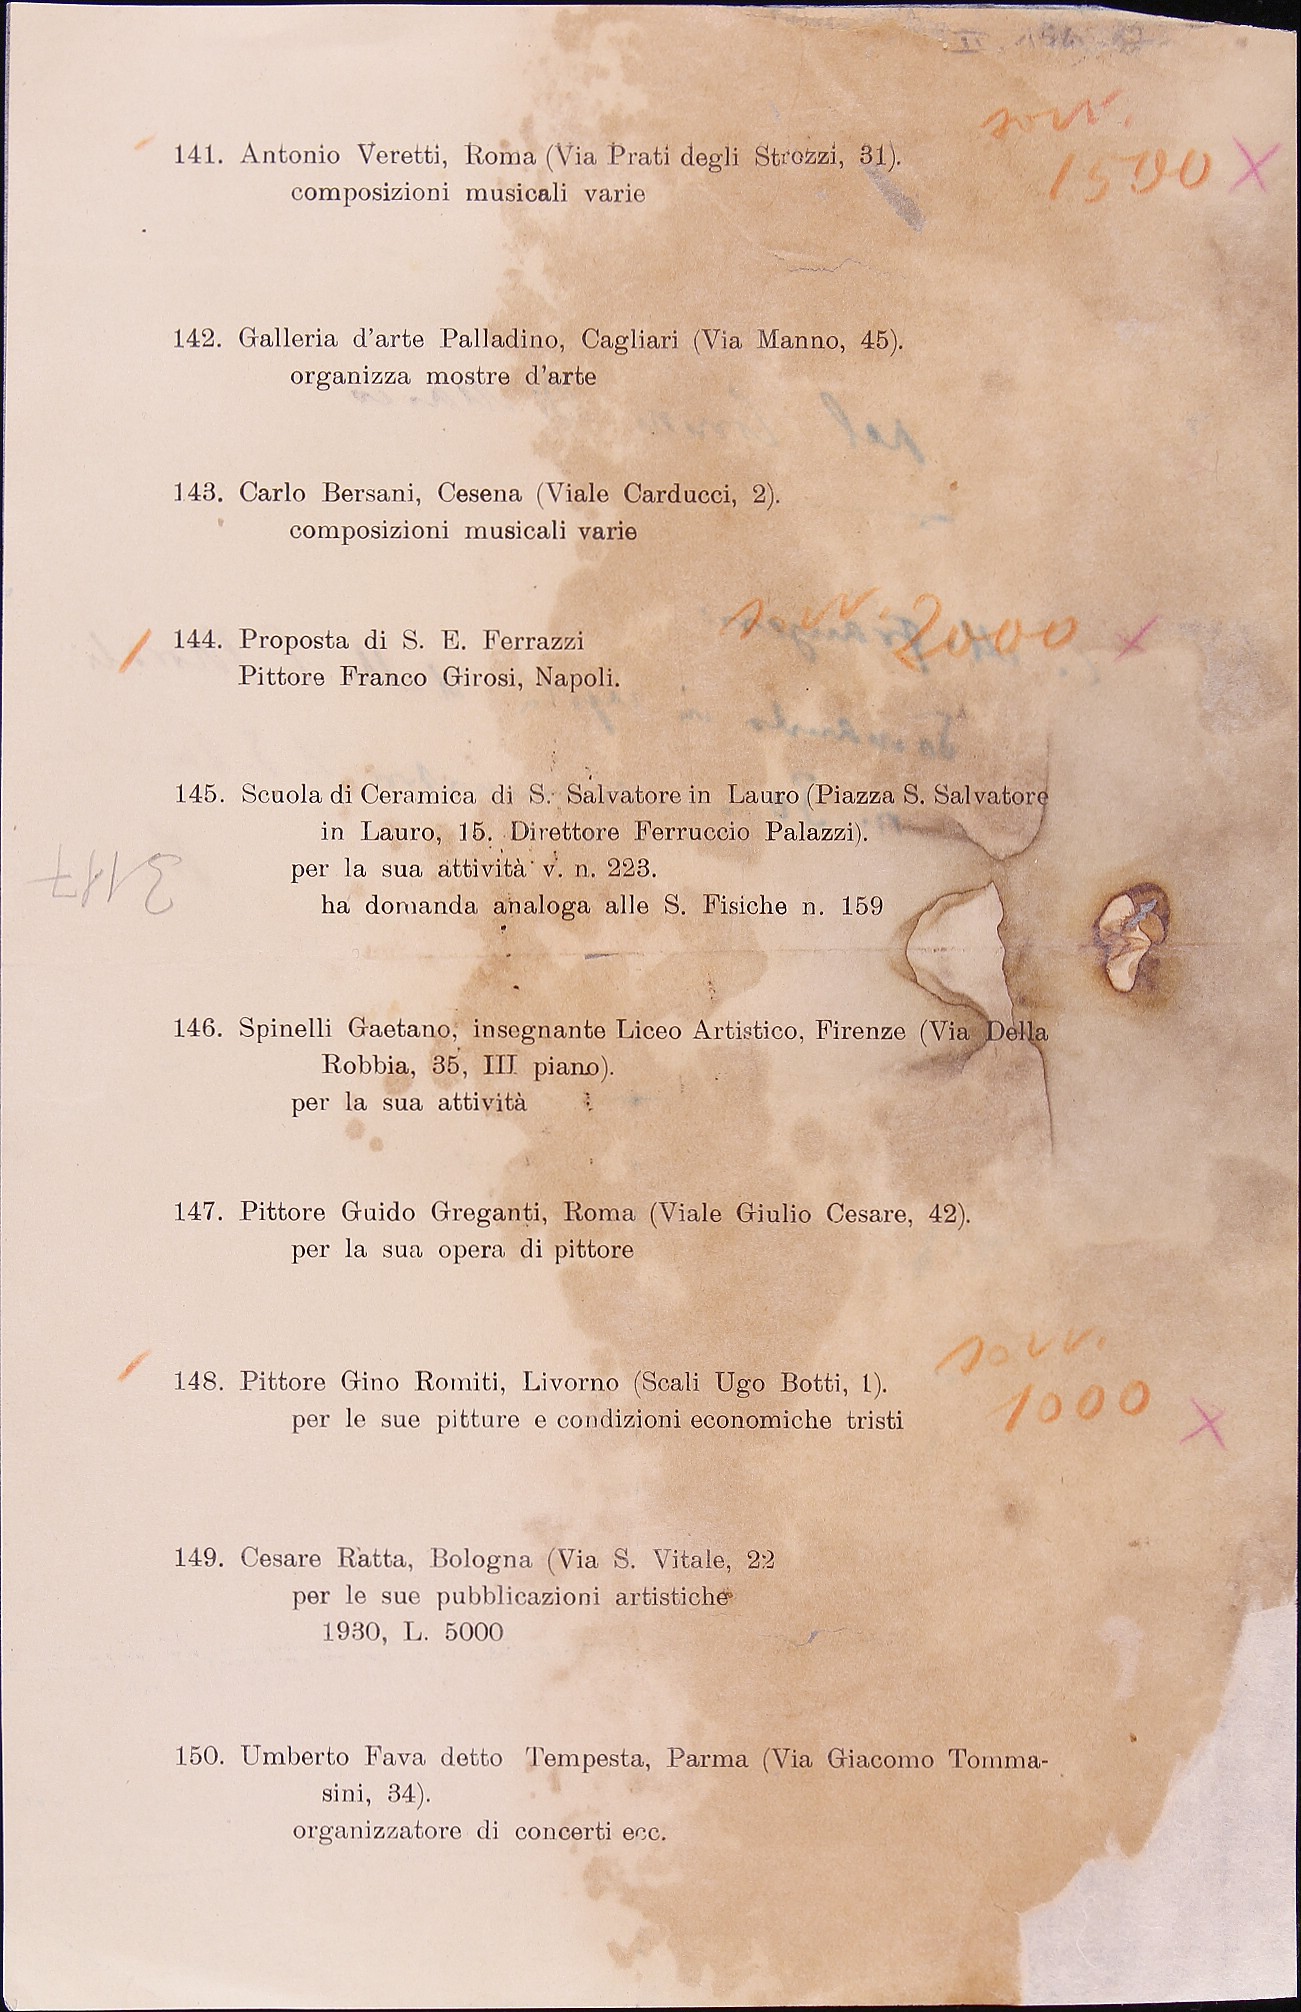 sovv.
141. Antonio Veretti, Roma (Via Prati degli Strozzi, 31).
1500 X
composizioni musicali varie
142. Galleria d'arte Palladino, Cagliari (Via Manno, 45).
organizza mostre d'arte
143. Carlo Bersani, Cesena (Viale Carducci, 2).
composizioni musicali varie
sovv. 2000 X
144. Proposta di S. E. Ferrazzi
Pittore Franco Girosi, Napoli.
145. Scuola di Ceramica di S. Salvatore in Lauro (Piazza S. Salvatore
in Lauro, 15. Direttore Ferruccio Palazzi).
per la sua attività v. n. 223.
ha domanda analoga alle S. Fisiche n. 159
146. Spinelli Gaetano, insegnante Liceo Artistico, Firenze (Via Della
Robbia, 35, III piano).
per la sua attività
147. Pittore Guido Greganti, Roma (Viale Giulio Cesare, 42).
per la sua opera di pittore
sovv.
148. Pittore Gino Romiti, Livorno (Scali Ugo Botti, 1).
1000 X
per le sue pitture e condizioni economiche tristi
149. Cesare Ratta, Bologna (Via S. Vitale, 22
per le sue pubblicazioni artistiche
1930, L. 5000
150. Umberto Fava detto Tempesta, Parma (Via Giacomo Tomma-
sini, 34).
organizzatore di concerti ecc.